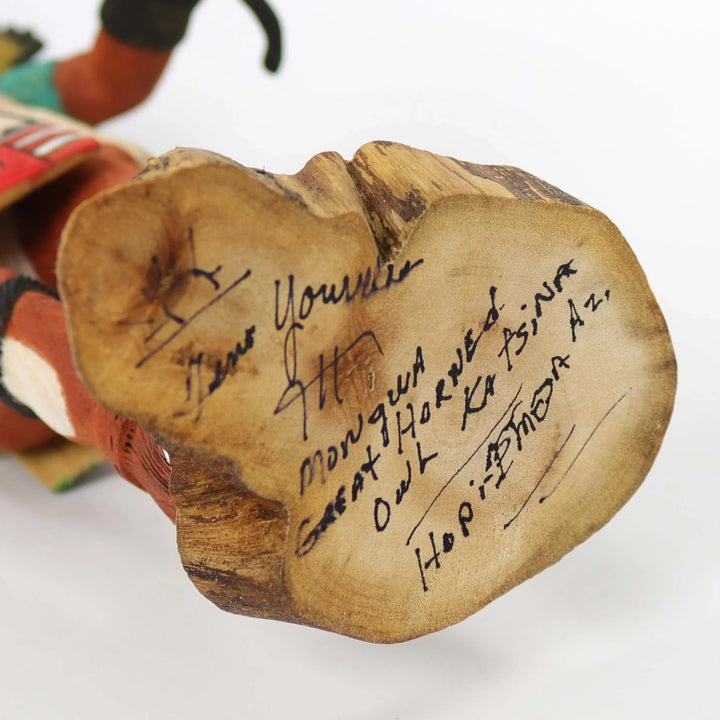 Tino Youvella
MONGWA
GREAT HORNED
OWL KATSINA
HOPI-
AZ.